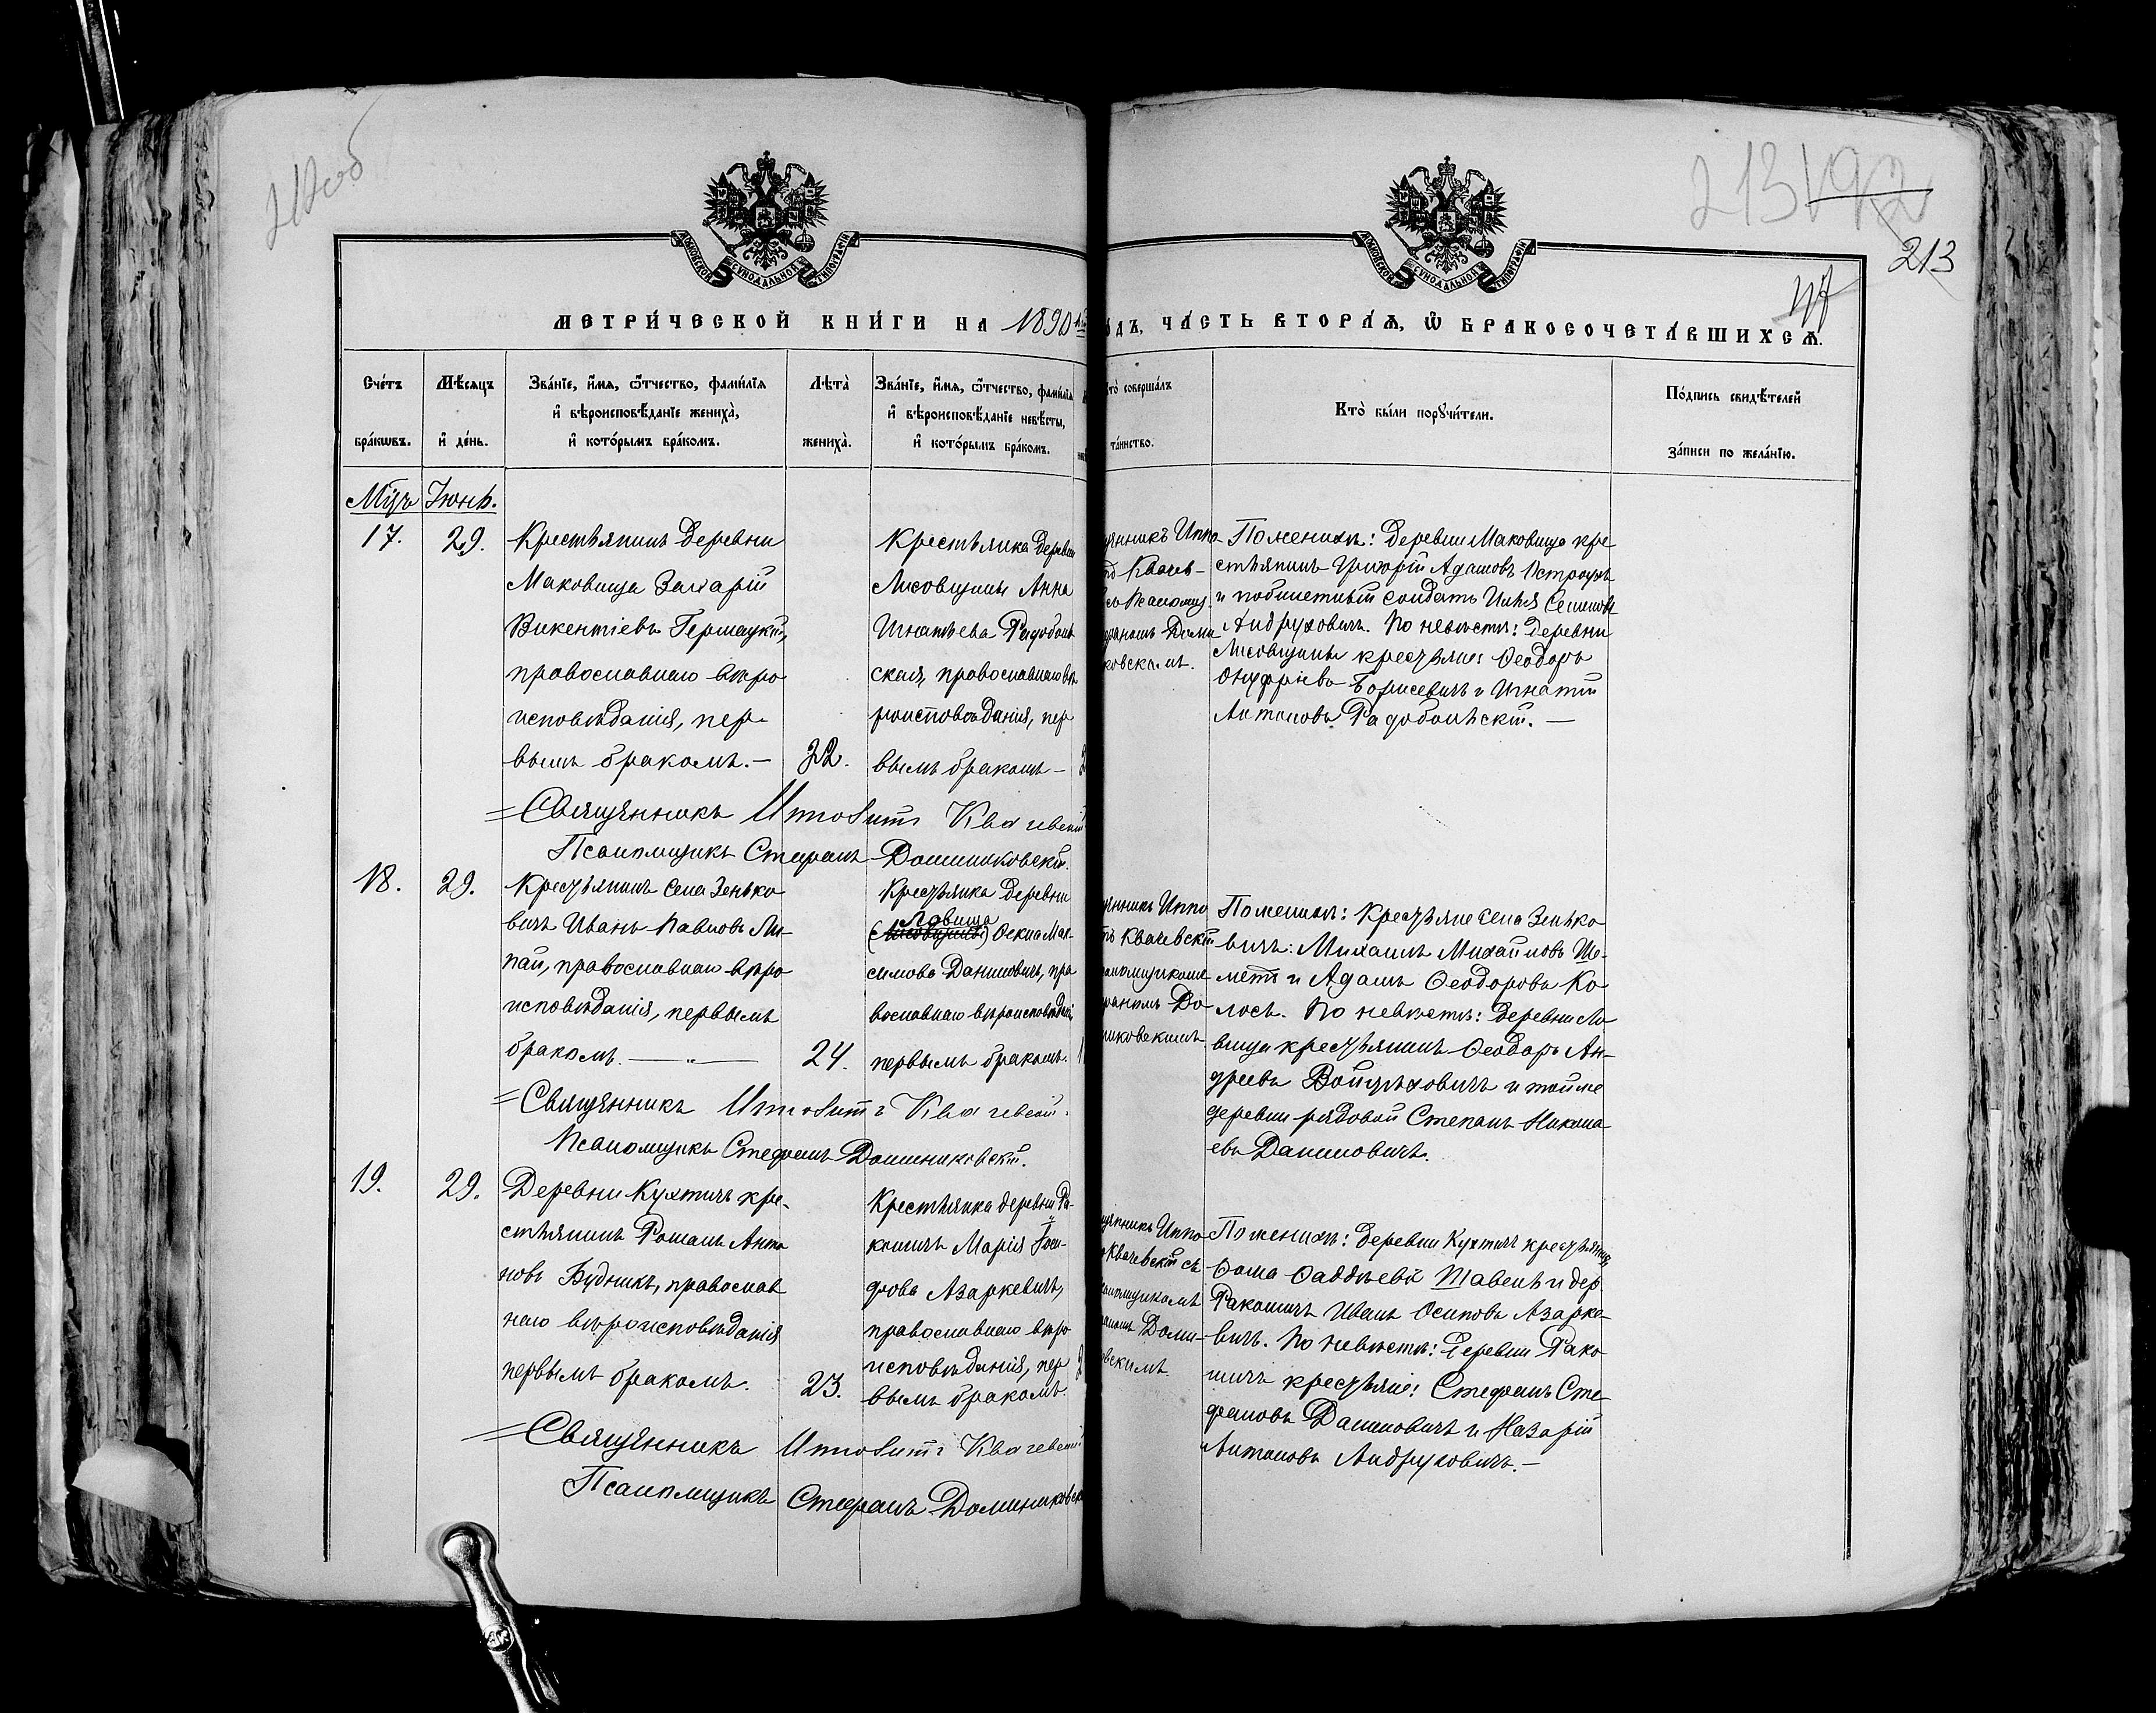 212об
213
192
213
МОСКОВСКОЙ СѴНОДАЛЬНОЙ ТИПОГРАФІИ
МОСКОВСКОЙ СѴНОДАЛЬНОЙ ТИПОГРАФІИ
МЕТРИ́ЧЕСКОЙ КНИ́ГИ НА 1890
ОДЪ, ЧА́СТЬ ВТОРА́Ѧ, Ѡ БРАКОСОЧЕТА́ВШИХСѦ.
Сче́тъ бра́кѡвъ.
Мѣ́сяцъ и҆ де́нь.
Зва́нїе, и҆́мѧ, ѻ҆́тчество, фами́лїѧ и҆ вѣроисповѣ́данїе жениха̀, и҆ кото́рымъ бра́комъ.
Лѣта̀ жениха̀.
Зва́нїе, и҆́мѧ, ѻ҆́тчество, фами́лїѧ и҆ вѣроисповѣ́данїе невѣ́сты, и҆ кото́рымъ бра́комъ.
то̀ соверша́лъ та́инство.
Кто̀ бы́ли порꙋчи́тели.
По́дпись свидѣ́телей за́писи по жела́нїю.
Мѣц Іюнь.
17.
29.
Крестьянинъ деревни
Маковища Захарій
Викентіевъ Гермацкій,
православнаго вѣро
исповѣданія, пер-
вымъ бракомъ.—
32.
Крестьянка деревни
Лисовщины Анна
Игнатьева Радоболь
ская, православнаго вѣ
роисповѣданія, пер
вымъ бракомъ—
щенникъ Иппо
Квачев-
Псаломщ.
Доми
ковскимъ.
По женихѣ: деревни Маковища кре
стьянинъ Григорій Адамовъ Остроухъ
и побилетный солдатъ Илья Семеновъ
Андруховичъ. По невѣстѣ: деревни
Лисовщины крестьяне: Ѳеодоръ
Онуфріевъ Борисевичъ и Игнатій
Антоновъ Радобольскій.—
=Священникъ Ипполитъ Квачевскій
Псаломщикъ Стефанъ Доминиковскій.
18.
29.
Крестьянинъ села Зенько
вичъ Иванъ Павловъ Ли-
пай, православнаго вѣро
исповѣданія, первымъ
бракомъ. — „ —
24.
Крестьянка деревни
Ловища
(Лисовщины) Ѳекла Мак-
симова Даниловичъ, пра
вославнаго вѣроисповѣдані,
первымъ бракомъ.
щенникъ Иппо
тъ Квачевскій
аломщикомъ
фаномъ До
никовскимъ.
По женихѣ: крестьяне села Зенько
вичъ: Михаилъ Михайловъ Ше-
метъ и Адамъ Ѳеодоровъ Ко
лосъ. По невѣстѣ: деревни Ло
вища крестьянинъ Ѳеодоръ Ан-
дреевъ Войцѣховичъ и тойже
деревни рядовой Степанъ Никола-
евъ Даниловичъ.
=Священникъ Ипполитъ Квачевскій.
Псаломщикъ Стефанъ Доминиковскій.
19.
29.
Деревни Кухтичъ кре-
стьянинъ Романъ Анто
новъ Будникъ, православ
наго вѣроисповѣданія
первымъ бракомъ.
23.
Крестьянка деревни Ра-
кошичъ Марія Іоси-
фова Азаркевичъ,
православнаго вѣро
исповѣданія, пер
вымъ бракомъ.
щенникъ Иппо
Квачевскій съ
аломщикомъ
Доми-
овскимъ.
По женихѣ: деревни Кухтичъ крестьянинъ
Ѳома Ѳаддѣевъ Шавель и дер.
Ракошичъ Иванъ Осиповъ Азарке-
вичъ. По невѣстѣ: деревни Рако
шичъ крестьяне: Стефанъ Сте
фановъ Даниловичъ и Назарій
Антоновъ Андруховичъ.—
=Священникъ Ипполитъ Квачевскій
Псаломщикъ Стефанъ Доминиковск